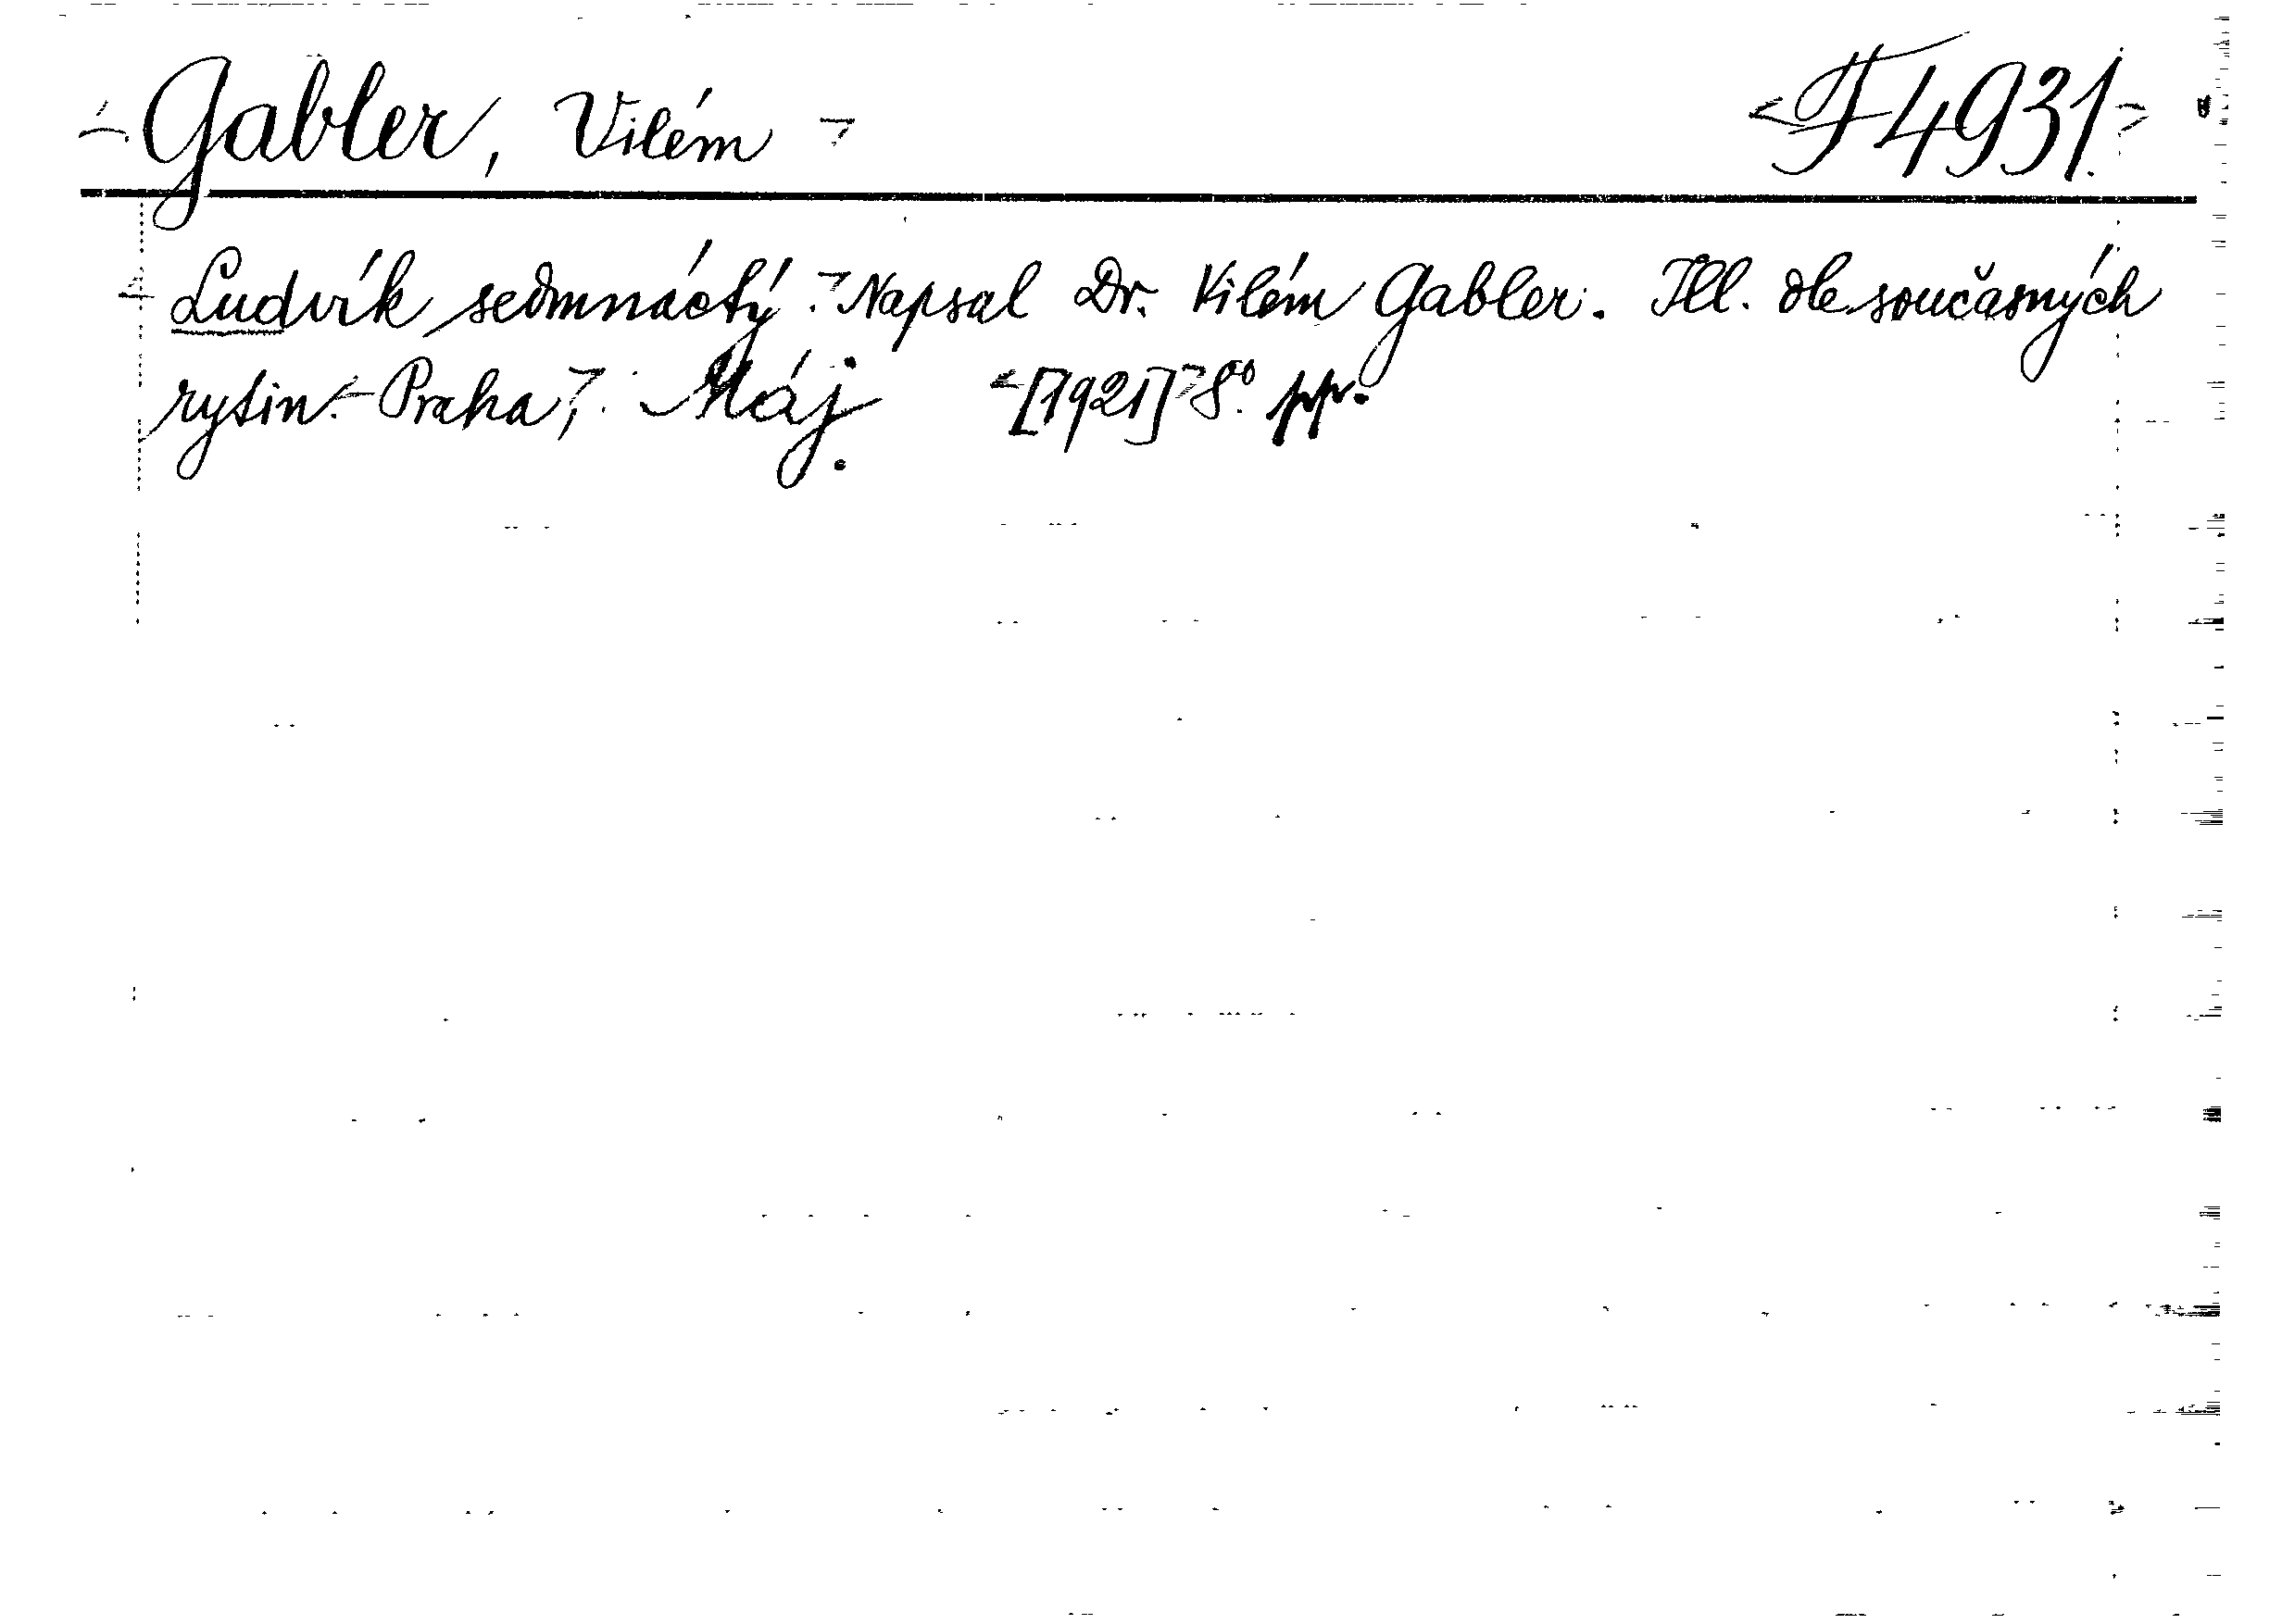 Gabler, Vilém F 4931.
Ludvík sedmnáctý. Napsal Dr. Vilém Gabler. Ill. dle současných
rytin. Praha, Máj. [1921] 8° pp.